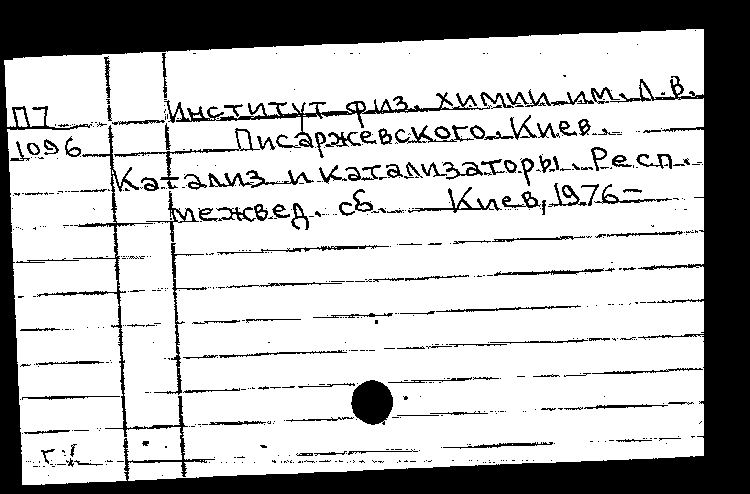 П7 Институт физ. химии им. Л.В.
1096 Писаржевского. Киев.
Катализ и катализаторы. Респ.
межвед. сб. Киев, 1976-